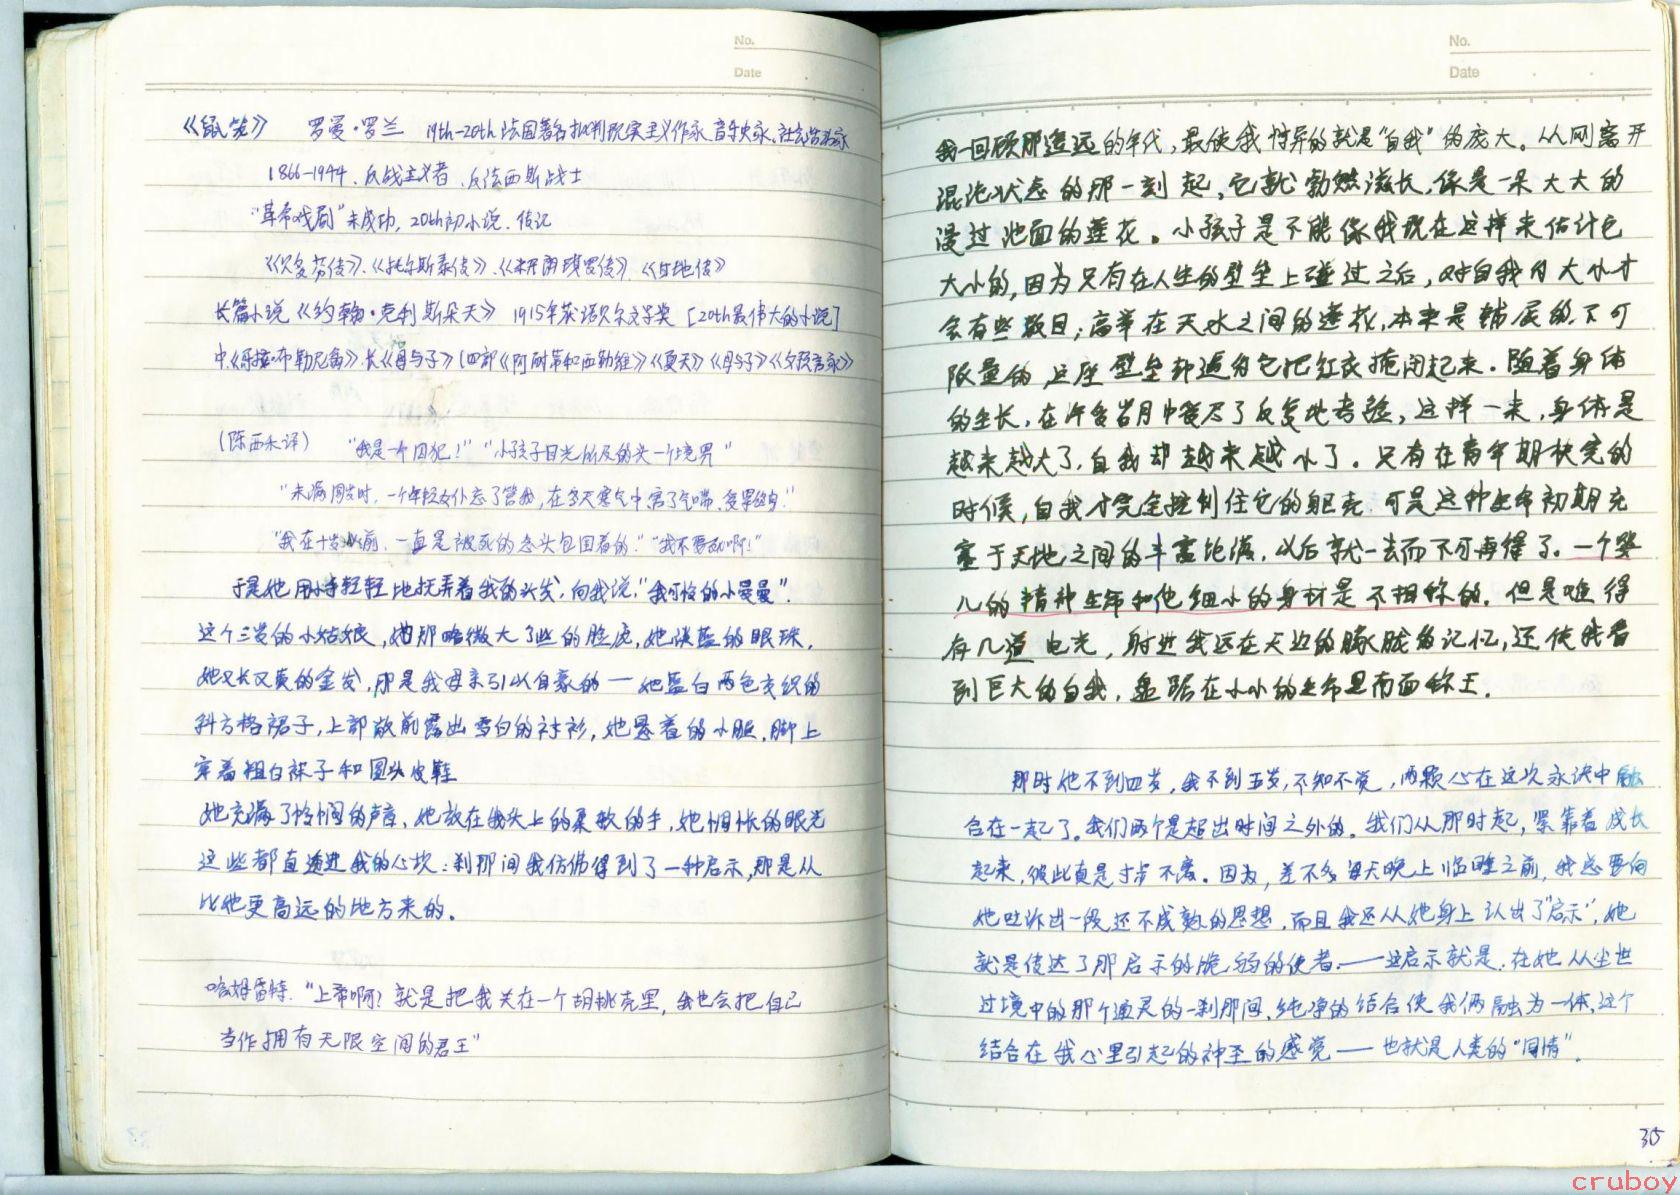 No.
Date
《鼠笼》 罗曼·罗兰 19th-20th 法国著名批判现实主义作家.音乐史家.社会活动家
1866-1944. 反战主义者.反法西斯战士
"革命戏剧"未成功, 20th初小说.传记
《贝多芬传》.《托尔斯泰传》.《米开朗琪罗传》.《甘地传》
长篇小说《约翰·克利斯朵夫》 1915年获诺贝尔文学奖 [20th最伟大的小说]
中.《哥拉·布勒尼翁》.长《母与子》(四部《阿耐蒂和西勒维》《夏天》《母与子》《女预言家》
(陈西禾译) "我是一个囚犯!" "小孩子目光所及的头一个境界"
"未满周岁时.一个年轻女仆忘了管我,在冬天寒气中.害了气喘.受累终身."
"我在十岁以前.一直是被死的念头包围着的." "我不要死啊!"
于是她用小手轻轻地抚弄着我的头发,向我说,"我可怜的小曼曼".
这个三岁的小姑娘,她那略微大了些的脸庞,她淡蓝的眼珠,
她又长又美的金发,那是我母亲引以自豪的——她蓝白两色交织的
斜方格裙子,上部敞前露出雪白的衬衫,她悬着的小腿.脚上
穿着粗白袜子和圆头皮鞋
她充满了怜悯的声音、她放在我头上的柔软的手,她惆怅的眼光
这些都直透进我的心坎:刹那间我仿佛得到了一种启示,那是从
比她更高远的地方来的。
哈姆雷特."上帝啊!就是把我关在一个胡桃壳里,我也会把自己
当作拥有无限空间的君王"
No.
Date
我一回顾那遥远的年代,最使我惊异的就是"自我"的庞大。从刚离开
混沌状态的那一刻起,它就勃然滋长,像是一朵大大的
漫过池面的莲花。小孩子是不能像我现在这样来估计它
大小的,因为只有在人生的壁垒上碰过之后,对自我的大小才
会有些数目;高举在天水之间的莲花,本来是铺展的.不可
限量的 这座壁垒却逼得它把红衣掩闭起来.随着身体
的生长,在许多岁月中受尽了反复地考验,这样一来,身体是
越来越大了,自我却越来越小了。只有在青年期快完的
时候,自我才完全控制住它的躯壳.可是这种生命初期充
塞于天地之间的丰富饱满,以后就一去而不可再得了.一个婴
儿的精神生命和他细小的身材是不相称的.但是难得
有几道电光,射进我远在天边的朦胧的记忆,还使我看
到巨大的自我,盘踞在小小的生命里南面称王.
那时他不到四岁,我不到五岁,不知不觉,两颗心在这次永诀中融
合在一起了.我们两个是超出时间之外的.我们从那时起,紧靠着成长
起来,彼此真是寸步不离。因为,差不多每天晚上临睡之前,我总要向
她吐诉出一段还不成熟的思想.而且我还从她身上认出了"启示",她
就是传达了那启示的脆弱的使者.——这启示就是:在她从尘世
过境中的那个通灵的一刹那间,纯净的结合使我俩融为一体,这个
结合在我心里引起的神圣的感觉——也就是人类的"同情".
35
cruboy